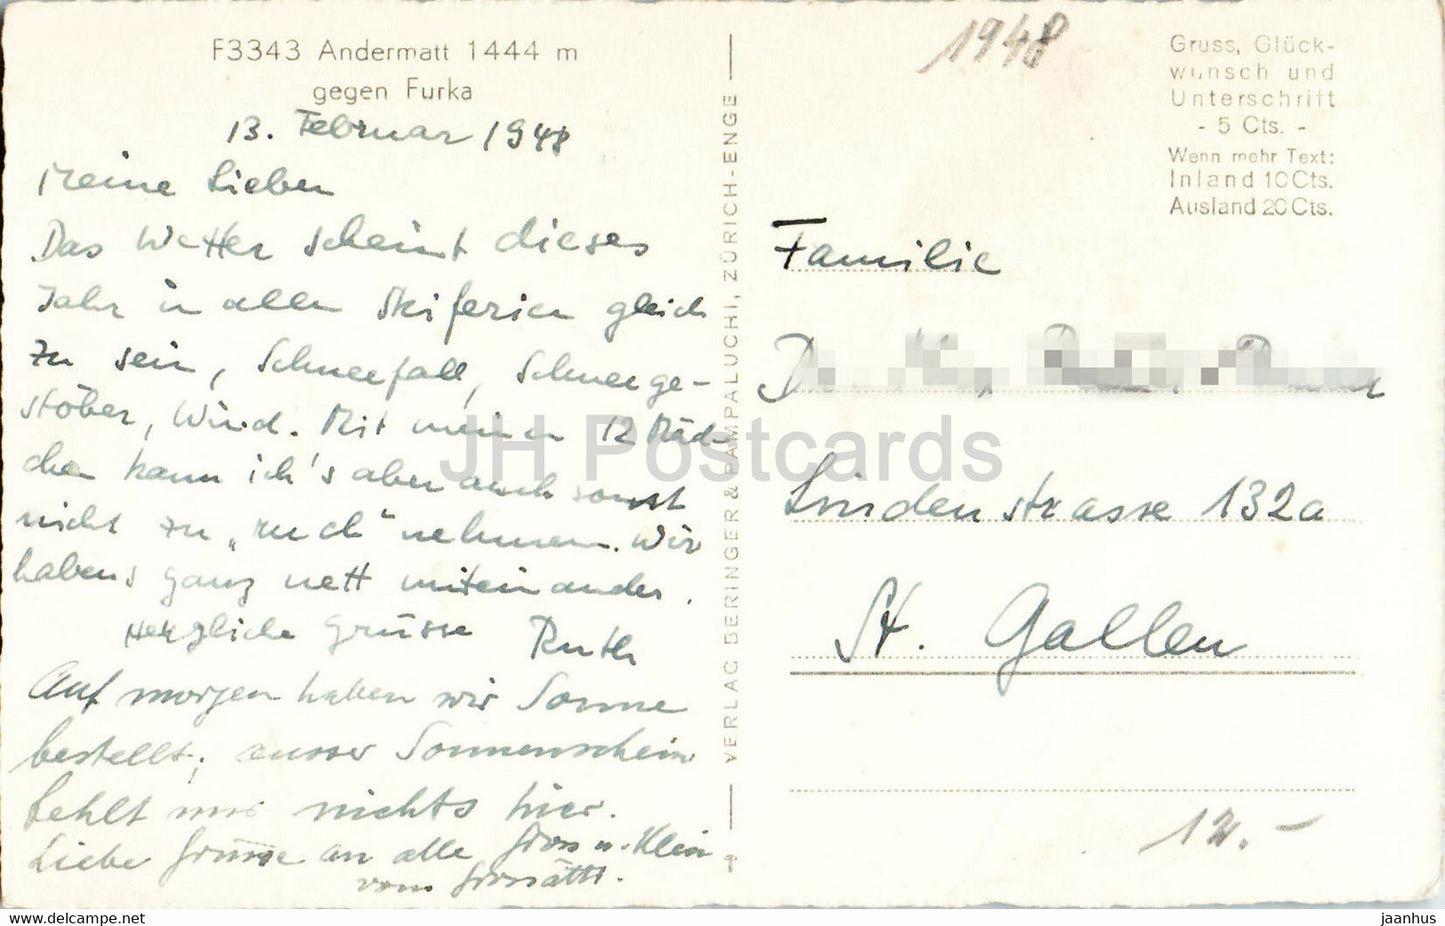 F3343 Andermatt 1444 m
gegen Furka
13. Februar 1948
Meine Lieben
Das Wetter scheint dieses
Jahr in allen Skiferien gleich
zu sein, Schneefall, Schneege-
stöber, Wind. Mit meinen 12 Mäd-
chen kann ich's aber auch sonst
nicht zu „ruch" nehmen. Wir
habens ganz nett miteinander.
Herzliche Grüsse Ruth
Auf morgen haben wir Sonne
bestellt; ausser Sonnenschein
fehlt uns nichts hier.
Liebe Grüsse an alle Gross u. Klein
vom
VERLAG BERINGER & PAMPALUCHI, ZÜRICH-ENGE
1948
Gruss, Glück-
wunsch und
Unterschrift
- 5 Cts. -
Wenn mehr Text:
Inland 10 Cts.
Ausland 20 Cts.
Familie
Lindenstrasse 132a
St. Gallen
12.-
JH Postcards
jaanhus